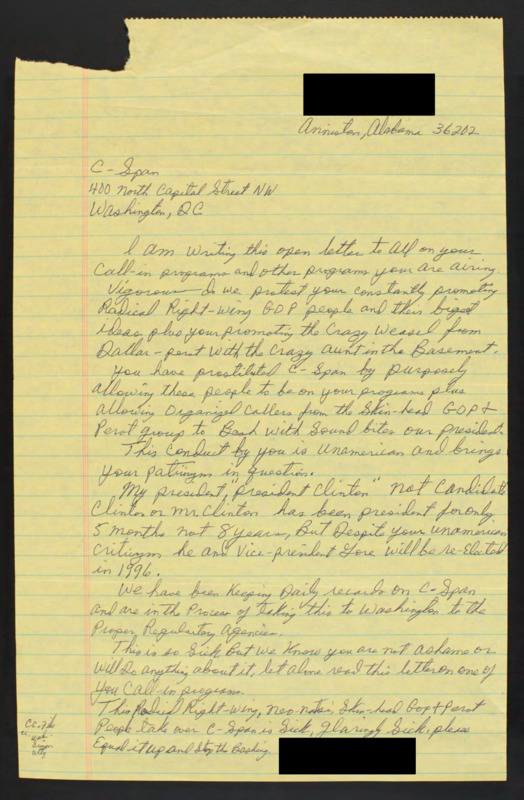 Anniston, Alabama 36202
C-Span
400 North Capital Street NW
Washington, DC
I am writing this open letter to all on your
Call-in programs and other programs you are airing.
Vigorous do we protest your constantly promoting
Radical Right-wing GOP people and their biased
ideas plus your promoting the Crazy Weasel from
Dallar-perot with the crazy aunt in the Basement.
You have prostituted C-Span by purposely
allowing these people to be on your programs plus
allowing Organized Callers from the Skin-head GOP &
Perot group to Bash with Sound bites our president.
This conduct by you is unamerican and brings
your patriotism in question.
My president, "President Clinton" not Candidate
Clinton or Mr. Clinton has been president for only
5 months not 8 years, But Despite your unamerican
Criticism he and Vice-president Gore will be re-elected
in 1996.
We have been Keeping Daily records on C-Span
and are in the Process of taking this to Washington to the
Proper Regulatory Agencies.
This is so Sick But we Know you are not ashame or
will Do anything about it, let alone read this letter on one of
you Call-in programs.
This Radical Right-wing, neo-nazi, Skin-head Gop & Perot
People take over C-Span is Sick, glaringly Sick, please
Equal it up and Stop the Bashing.
CC-
atty